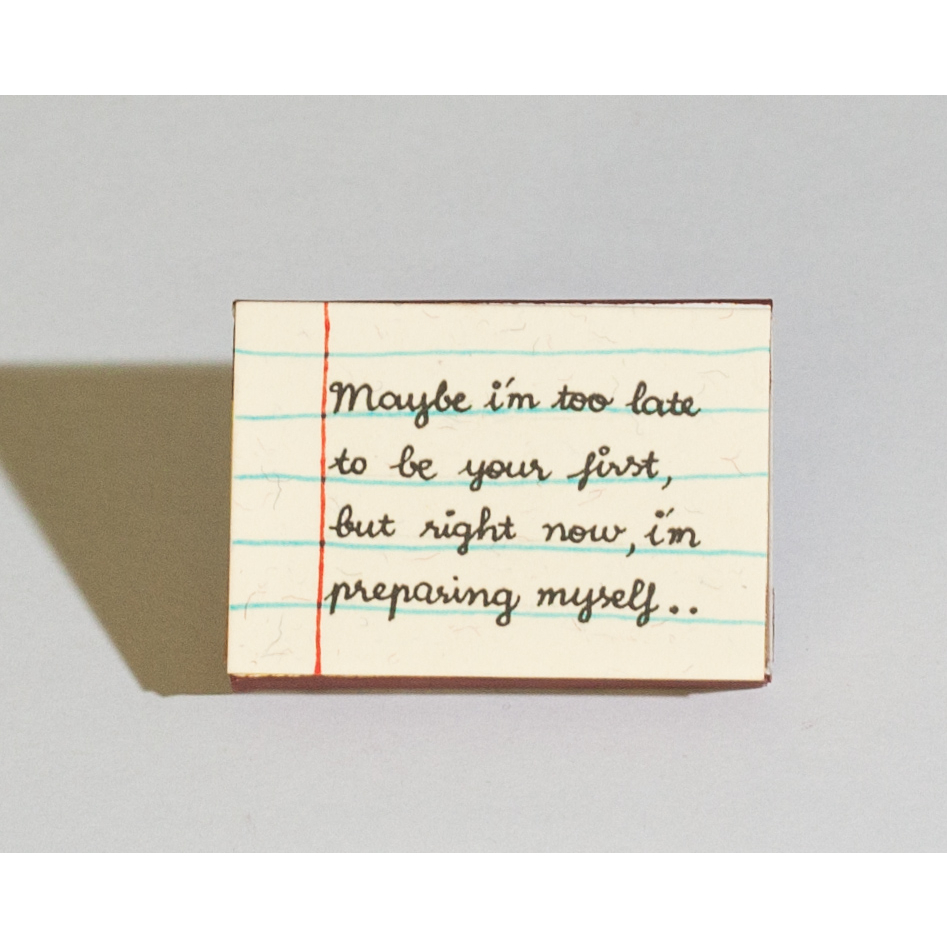 Maybe i'm too late
to be your first,
but right now, i'm
preparing myself..